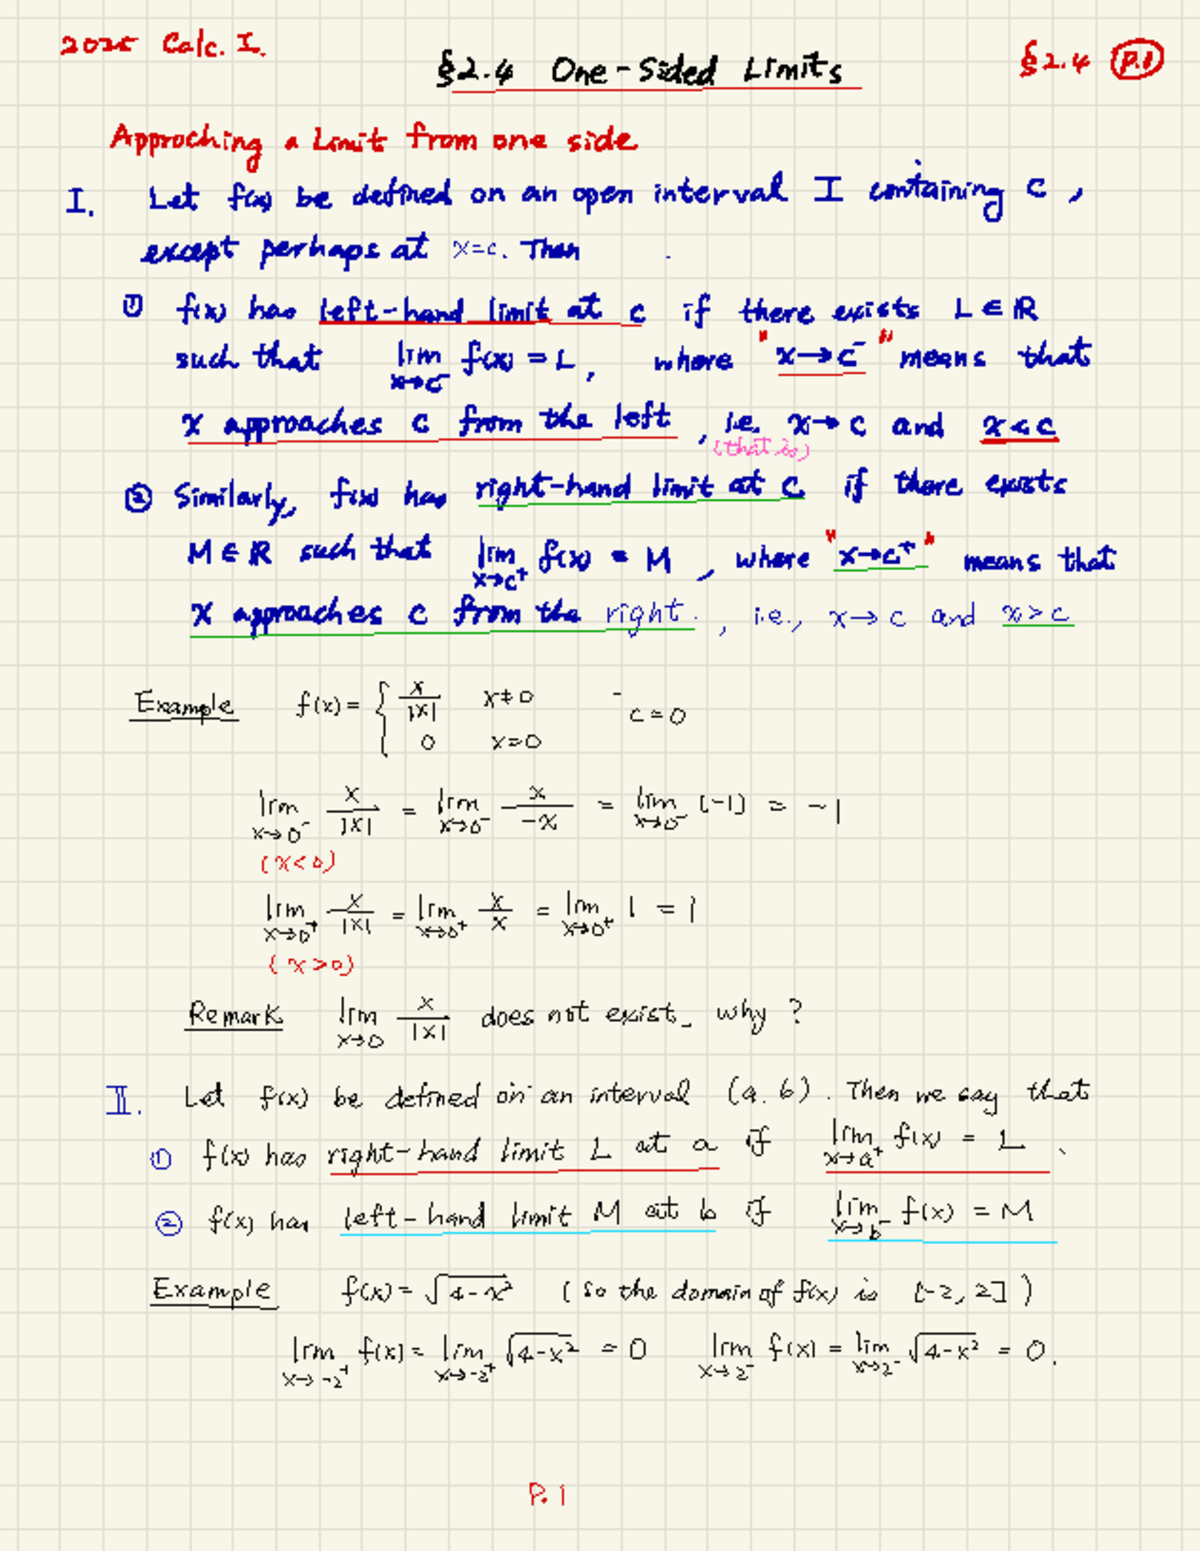 2025 Calc. I.
§2.4 One-Sided Limits
§2.4 P.1
Approching a Limit from one side
I. Let f(x) be defined on an open interval I containing c,
except perhaps at x=c. Then
① f(x) has left-hand limit at c if there exists L∈ℝ
such that lim x→c⁻ f(x) = L, where "x→c⁻" means that
x approaches c from the left, i.e. x→c and x<c
(that is)
② Similarly, f(x) has right-hand limit at c if there exists
M∈ℝ such that lim x→c⁺ f(x) = M, where "x→c⁺" means that
x approaches c from the right., i.e., x→c and x>c
Example f(x) = { x/|x| x≠0 c=0
0 x=0
lim x→0⁻ x/|x| = lim x→0⁻ x/-x = lim x→0⁻ (-1) = -1
(x<0)
lim x→0⁺ x/|x| = lim x→0⁺ x/x = lim x→0⁺ 1 = 1
(x>0)
Remark lim x→0 x/|x| does not exist. why?
II. Let f(x) be defined on an interval (a.b). Then we say that
① f(x) has right-hand limit L at a if lim x→a⁺ f(x) = L.
② f(x) has left-hand limit M at b if lim x→b⁻ f(x) = M
Example f(x) = √4-x² (so the domain of f(x) is [-2, 2])
lim x→-2⁺ f(x) = lim x→-2⁺ √4-x² = 0 lim x→2⁻ f(x) = lim x→2⁻ √4-x² = 0.
P.1